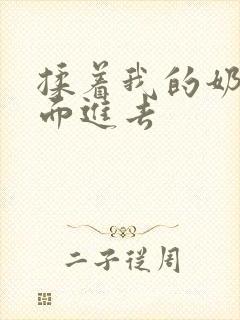 揉着我的奶
而進去
二子從周